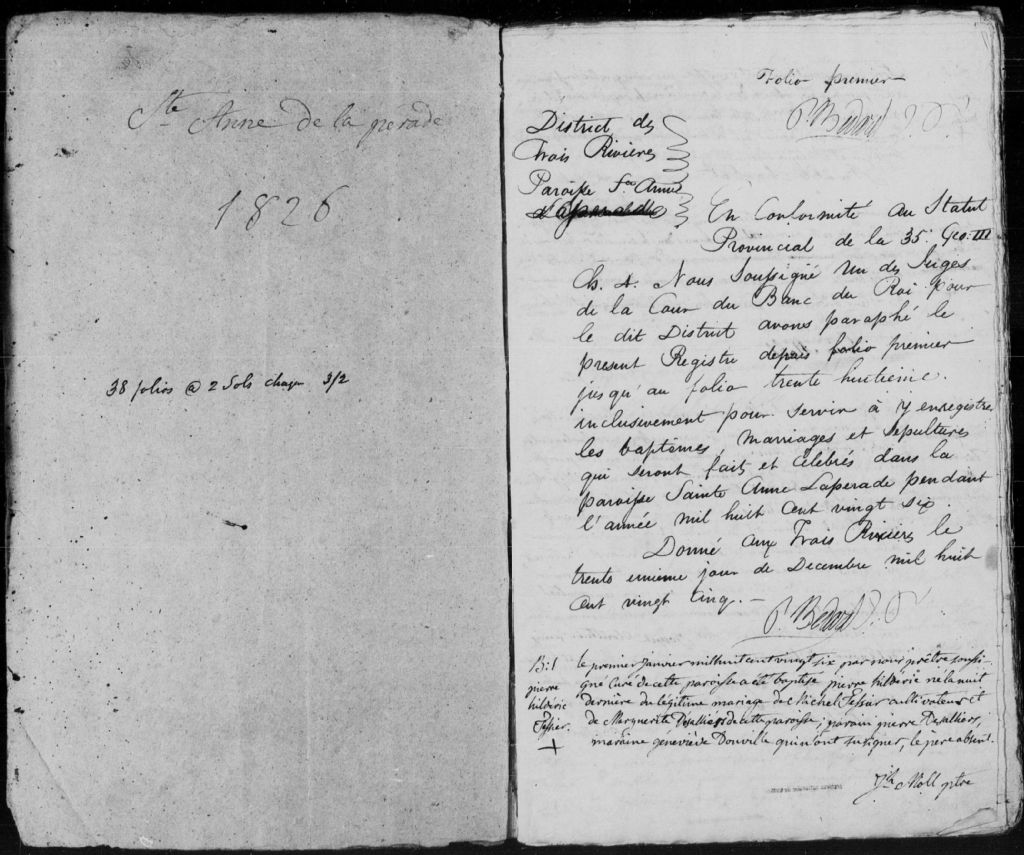 Ste Anne de la perade
1826
38 folios @ 2 Sols chaque 3/2
Folio premier
P. Bedard J.
District des
Trois Rivieres
Paroisse Ste Anne
En Conformité au Statut
Provincial de la 35. Geo. III
Ch. 4. Nous Soussigné un des Juges
de la Cour du Banc du Roi pour
le dit District avons paraphé le
present Registre depuis folio premier
jusqu'au folio trente huitieme.
inclusivement pour servir à y enregistrer
les baptêmes, mariages et sepultures
qui seront faits et célébrés dans la
paroisse Sainte Anne Laperade pendant
l'année mil huit cent vingt six
Donné aux Trois Rivieres le
trente unieme jour de Decembre mil huit
cent vingt cinq. —
P. Bedard J.
B:1
pierre
hildéric
Tessier.
+
le premier janvier mil huit cent vingt six par nous prêtre soussi-
gné Curé de cette paroisse a été baptisé pierre hildéric né la nuit
dernière du légitime mariage de Michel Tessier cultivateur et
de Marguerite Désalliers de cette paroisse; parain pierre Desalliers,
maraine géneviève Douville qui n'ont su signer, le pere absent.
Jh Moll ptre